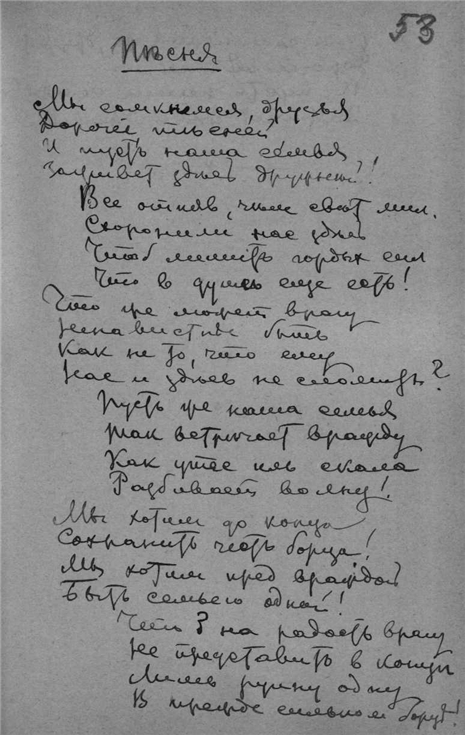 53
Пѣсня
Мы сомкнемся, друзья
Дорогой пѣсней
И пусть наша семья,
Заживет здѣсь дружней!
Все отняв, чем свѣт мил.
Схоронили нас здѣсь
Чтоб лишить гордых сил
Что в душѣ еще есть!
Что же может врагу
Ненавистнѣе быть
Как не то, что ему
Нас и здѣсь не сломить?
Пусть же наша семья
Так встрѣчает вражду
Как утес иль скала
Разбивает волну!
Мы хотим до конца
Сохранить честь борца!
Мы хотим пред враждой
Быть семьею одной!
Чтоб на радость врагу
Не представить в концѣ
Лишь руину одну
В прежде сильном борцѣ!